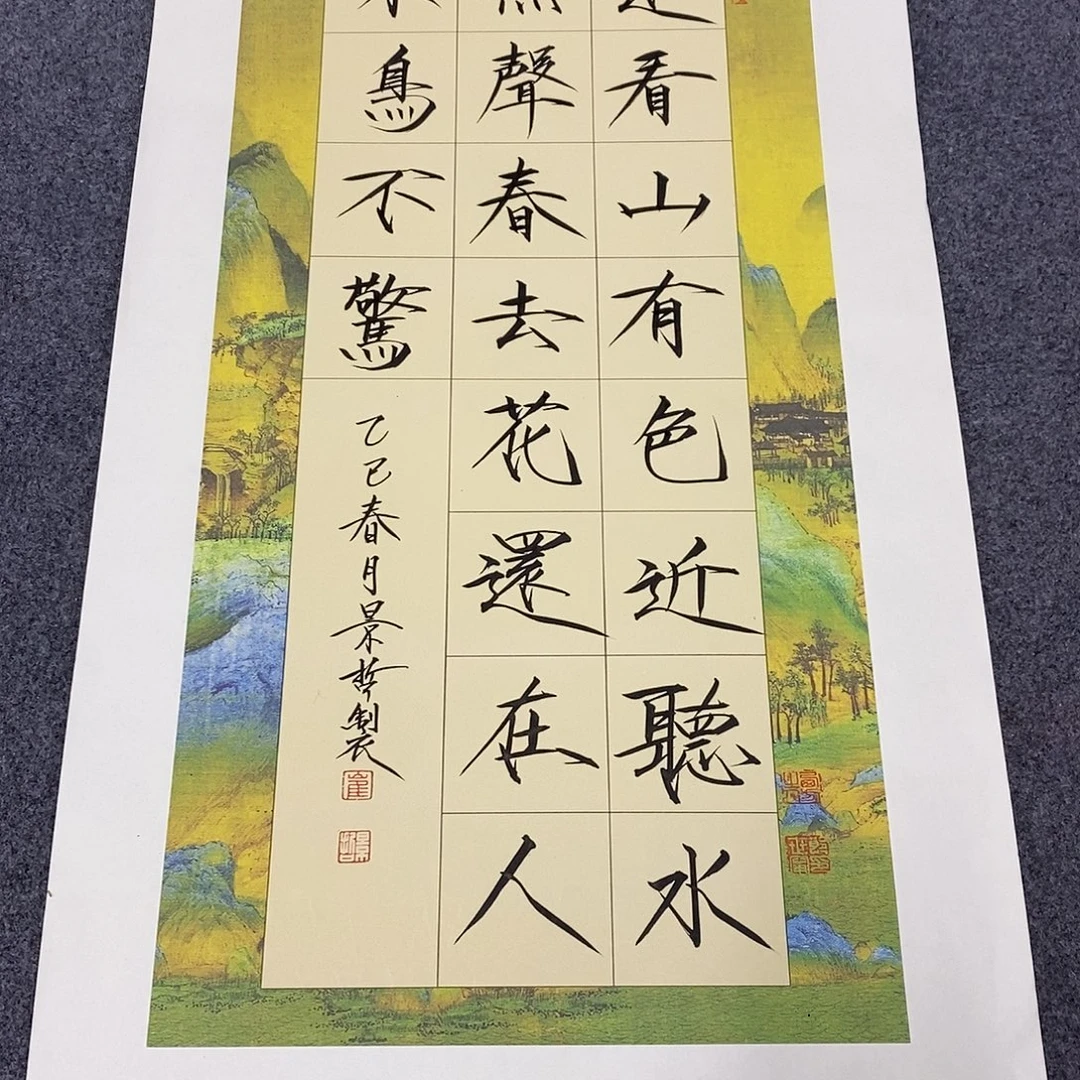 看山有色近聽水
聲春去花還在人
鳥不驚
乙巳春月景哲製
崔
景哲